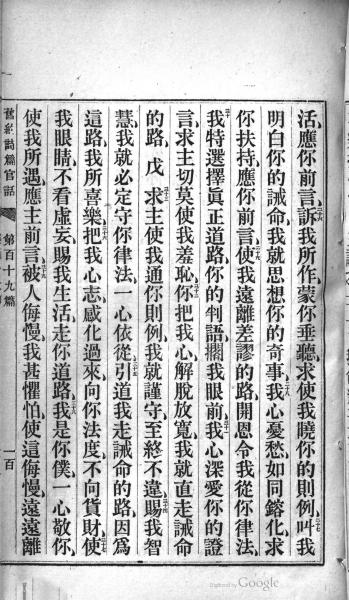 活應你前言、二十六訴我所作蒙你垂聽求使我曉你的則例、二十七叫我
明白你的誡命我就思想你的奇事、二十八我心憂愁如同鎔化、求
你扶持應你前言、二十九使我遠離差謬的路、開恩令我從你律法、
三十我特選擇眞正道路、你的判語擺我眼前、三十一我心深愛你的證
言、求主切莫使我羞恥、三十二你把我心解脫放寬、我就直走誡命
的路、戊 三十三求主使我通你則例、我就謹守至終不違、三十四賜我智
慧、我就必定守你律法、一心依從、三十五引道我走誡命的路、因爲
這路我所喜樂、三十六把我心志感化過來、向你法度、不向貨財、三十七使
我眼睛不看虛妄、賜我生活走你道路、三十八我是你僕、一心敬你、
使我所遇應主前言、三十九被人侮慢我甚懼怕、使這侮慢遠遠離
舊約詩篇官話 第百十九篇 一百
Digitized by Google